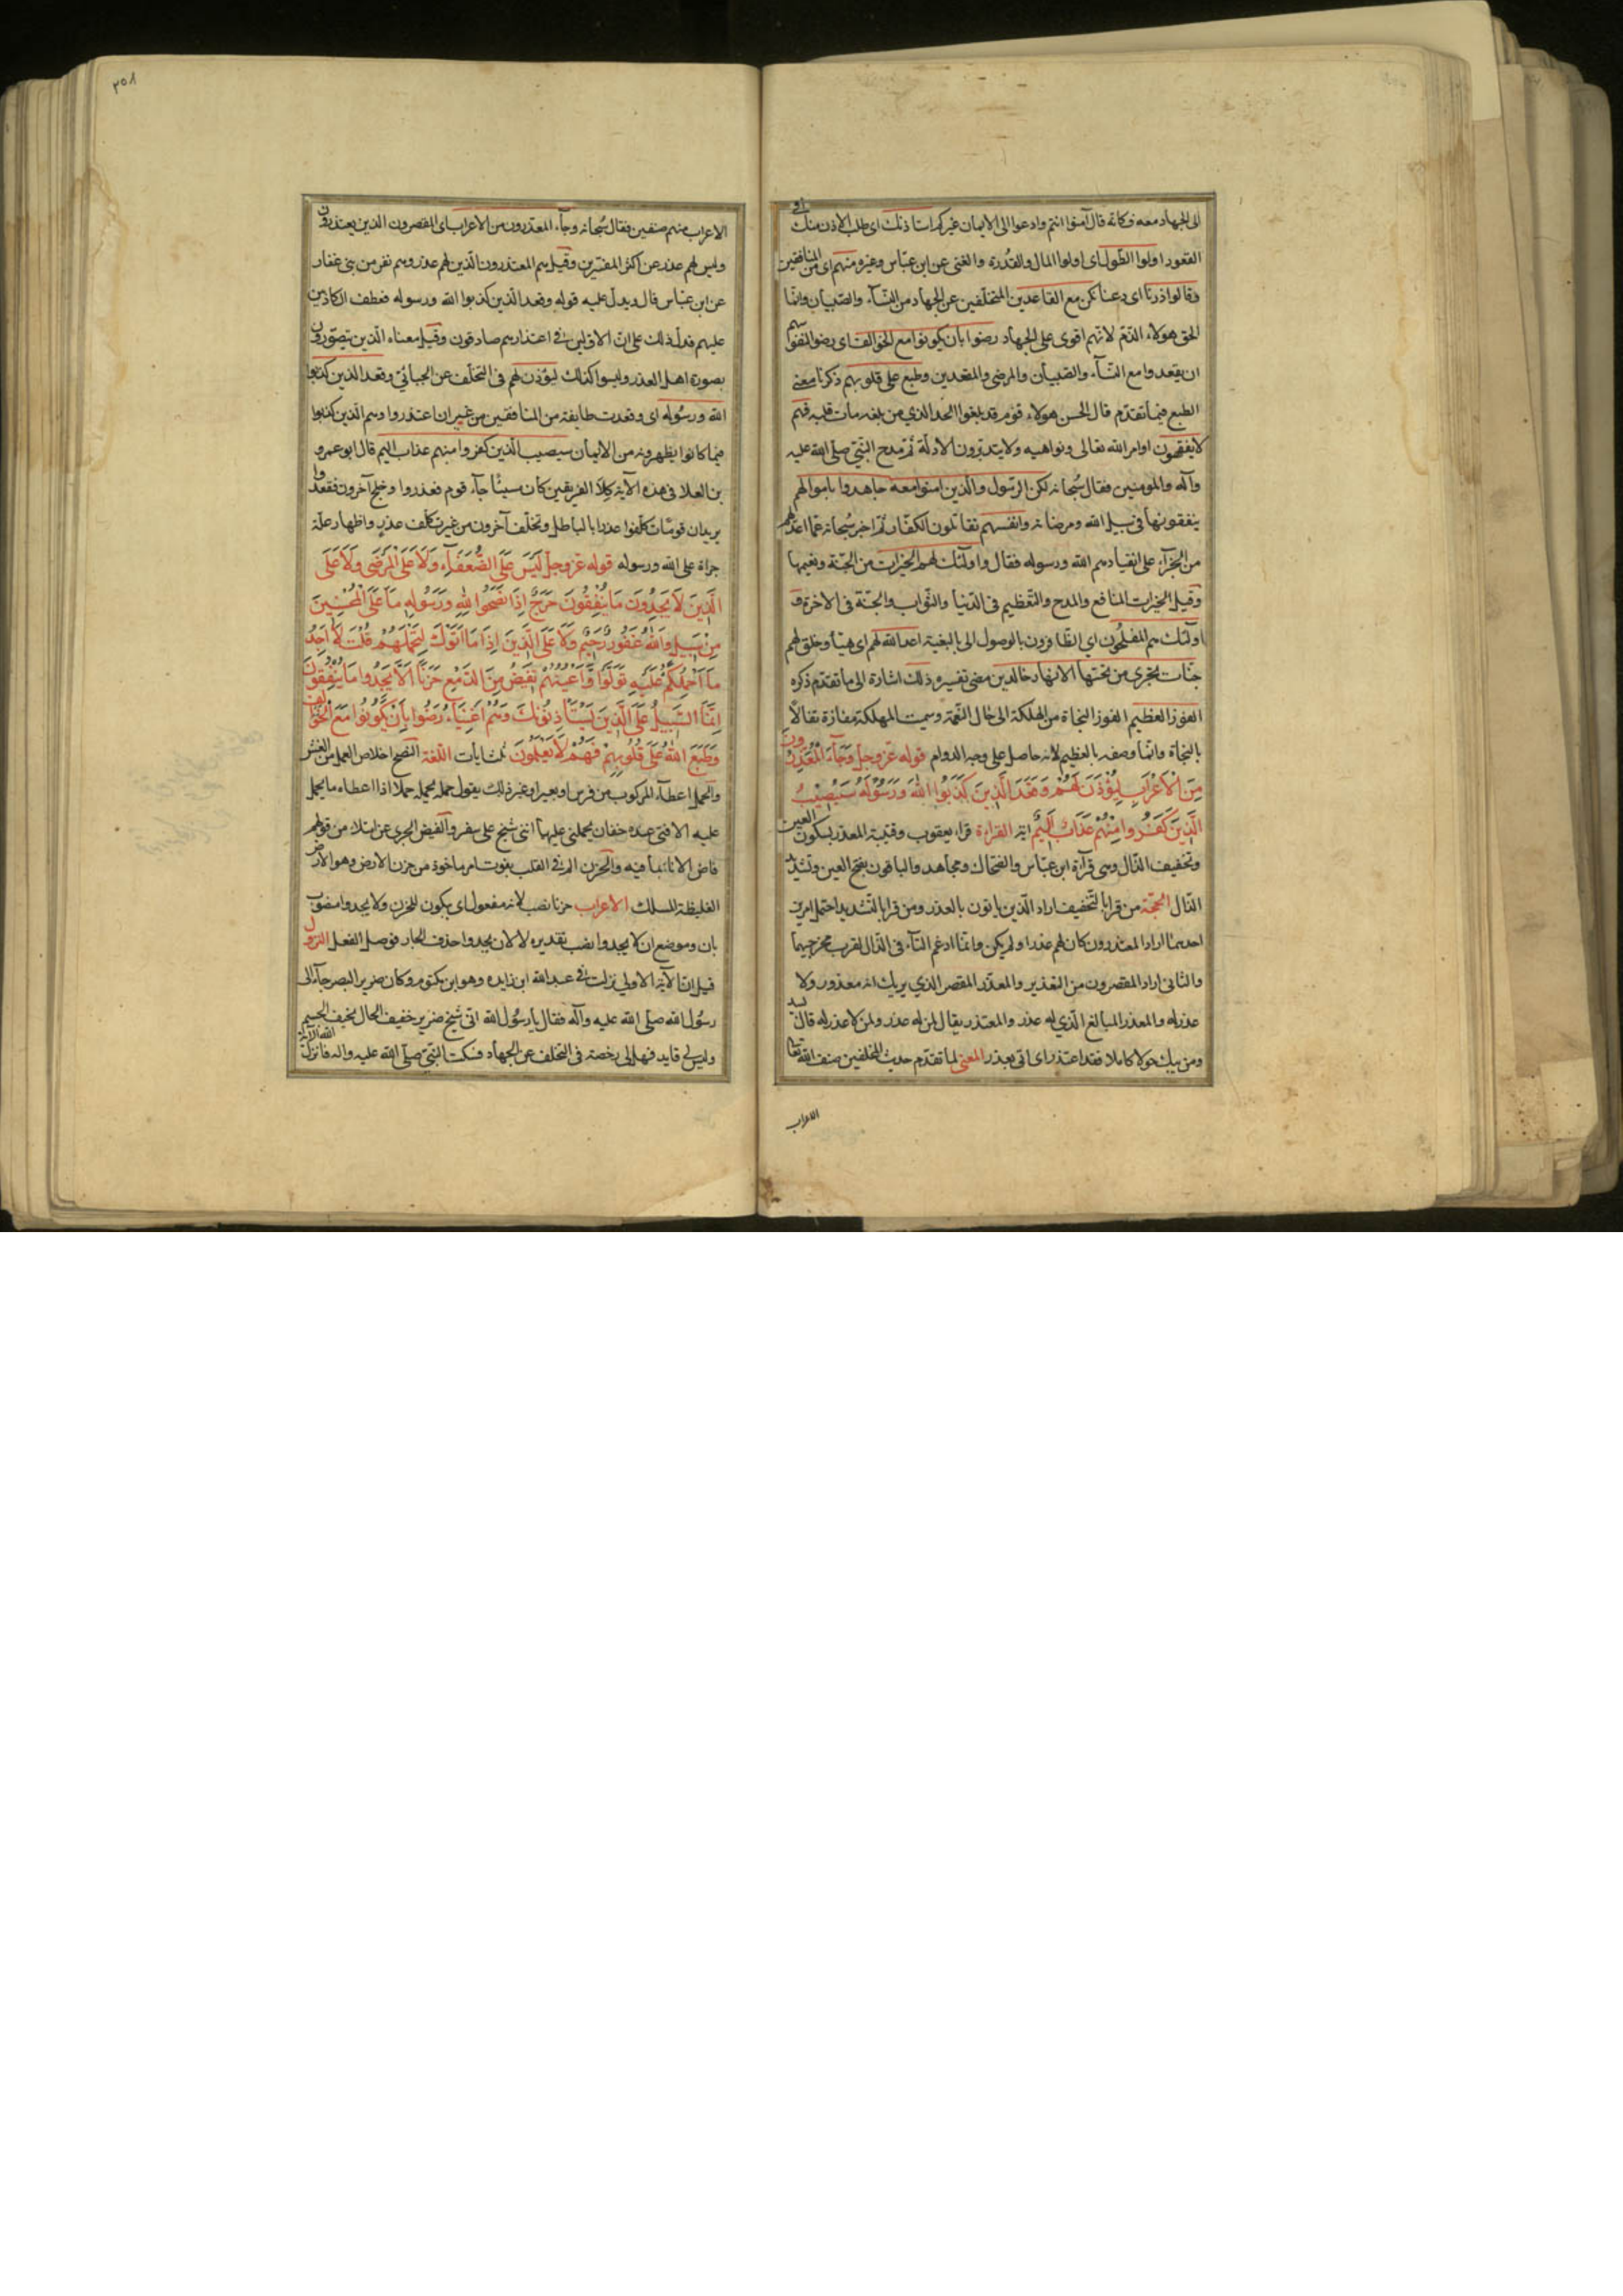 الى الجهاد معه فكانه قال آمنوا انتم وادعوا الى الايمان غيركم استاذنك اى طلب الاذن منك فى
القعود اولوا الطول اى اولوا المال والقدرة والغنى عن ابن عباس وغيره منهم اى من المنافقين
وقالوا ذرنا اى دعنا نكن مع القاعدين المتخلفين عن الجهاد من النسآء والصبيان وانما
الحق هولاء الذم لانهم اقوى على الجهاد رضوا بان يكونوا مع الخوالف اى رضوا لنفوسهم
ان يقعدوا مع النسآء والصبيان والمرضى والمقعدين وطبع على قلوبهم ذكرنا معنى
الطبع فيما تقدم قال الحسن هولاء قوم قد بلغوا الحد الذي من بلغه مات قلبه فهم
لا يفقهون اوامر الله تعالى ونواهيه ولا يتدبرون الادلة ثم مدح النبي صلى الله عليه
وآله والمومنين فقال سبحانه لكن الرسول والذين امنوا معه جاهدوا باموالهم
ينفقونها في سبيل الله ومرضاته وانفسهم يقاتلون الكفار ثم اخبر سبحانه عما اعد لهم
من الجزآء على انقيادهم الله ورسوله فقال واولئك لهم الخيرات من الجنة ونعيمها
وقيل الخيرات المنافع والمدح والتعظيم فى الدنيا والثواب والجنة فى الاخرة و
اولئك هم المفلحون اي الظافرون بالوصول الى البغية اعد الله لهم اى هيأ وخلق لهم
جنات تجرى من تحتها الانهار خالدين مضى تفسيره ذلك اشارة الى ما تقدم ذكره
الفوز العظيم الفوز النجاة من الهلكة الى حال النعمة وسميت المهلكة مفازة تفالا
بالنجاة وانما وصفه بالعظيم لانه حاصل على وجه الدوام قوله عز وجل وَجَآءَ الْمُعَذِّرُونَ
مِنَ الْاَعْرَابِ لِيُؤْذَنَ لَهُمْ وَقَعَدَ الَّذِينَ كَذَبُوا اللهَ وَرَسُولَهُ سَيُصِيْبُ
الَّذِينَ كَفَرُوا مِنْهُمْ عَذَابٌ اَلِيْمٌ اية القراءة قراء يعقوب وقتيبة المعذر بسكون العين
وتخفيف الذال وهى قرآءة ابن عباس والضحاك ومجاهد والباقون بفتح العين وتشديد
الذال الحجة من قرا بالتخفيف اراد الذين ياتون بالعذر ومن قرا بالتشديد احتمل امرين
احدهما اراد المعتذرون كان لهم عذر او لم يكن وانما ادغم التآء فى الذال لقرب مخرجيهما
والثانى اراد المقصرون من التعذير والمعذر المقصر الذي يريك انه معذور ولا
عذر له والمعذر المبالغ الذي له عذر والمعتذر يقال لمن له عذر ولمن لا عذر له قال لبيد
ومن يبك حولا كاملا فقد اعتذر اى اتى بعذر المعنى لما تقدم حديث المخلفين صنف الله تعالى
الاعراب
٣٥٨
الاعراب منهم صنفين فقال سبحانه وجآء المعذرون من الاعراب اى المقصرون الذين يعتذرون
وليس لهم عذر عن اكثر المفسرين وقيل هم المعتذرون الذين لهم عذر وهم نفر من بنى غفار
عن ابن عباس قال ويدل عليه قوله وقعد الذين كذبوا الله ورسوله فعطف الكاذبين
عليهم فدل ذلك على ان الاولين في اعتذارهم صادقون وقيل معناه الذين يتصورون
بصورة اهل العذر وليسوا كذلك ليؤذن لهم فى التخلف عن الجبائي وقعد الذين كذبوا
الله ورسوله اى وقعدت طايفة من المنافقين من غير ان اعتذروا وهم الذين كذبوا
فيما كانوا يظهرونه من الايمان سيصيب الذين كفروا منهم عذاب اليم قال ابو عمرو
بن العلا فى هذه الآية كلا الفريقين كان سيئا جآء قوم فعذروا وجنح آخرون فقعدوا
يريد ان قوما تكلفوا عذرا بالباطل وتخلف آخرون من غير تكلف عذر واظهار علة
جراة على الله ورسوله قوله عز وجل لَيْسَ عَلَى الضُّعَفَآءِ وَلَا عَلَى الْمَرْضَى وَلَا عَلَى
الَّذِينَ لَا يَجِدُونَ مَا يُنْفِقُونَ حَرَجٌ اِذَا نَصَحُوا لِلهِ وَرَسُولِهِ مَا عَلَى الْمُحْسِنِينَ
مِنْ سَبِيلٍ وَاللهُ غَفُورٌ رَحِيمٌ وَلَا عَلَى الَّذِينَ اِذَا مَا اَتَوْكَ لِتَحْمِلَهُمْ قُلْتَ لَا اَجِدُ
مَا اَحْمِلُكُمْ عَلَيْهِ تَوَلَّوْا وَاَعْيُنُهُمْ تَفِيضُ مِنَ الدَّمْعِ حَزَنًا اَلَّا يَجِدُوا مَا يُنْفِقُونَ
اِنَّمَا السَّبِيلُ عَلَى الَّذِينَ يَسْتَأْذِنُونَكَ وَهُمْ اَغْنِيَآءُ رَضُوا بِاَنْ يَكُونُوا مَعَ الْخَوَالِفِ
وَطَبَعَ اللهُ عَلَى قُلُوبِهِمْ فَهُمْ لَا يَعْلَمُونَ ثلث ايات اللغة النصح اخلاص العمل من الغش
والحمل اعطآء المركوب من فرس او بعير او غير ذلك يقول حمله يحمله حملا اذا اعطاه ما يحمل
عليه الا فتى عنده خفان يحملنى عليهما اننى شيخ على سفر والفيض الجرى عن امتلاء من قولهم
فاض الاناء بما فيه والحزن الم في القلب بفوت امر ماخوذ من حزن الارض وهو الارض
الغليظة المسلك الاعراب حزنا نصب لانه مفعول اى يبكون للحزن ولا يجدوا منصوب
بان وموضع ان لا يجدوا نصب تقديره لان لا يجدوا حذف الجار فوصل الفعل النزول
قيل ان الآية الاولى نزلت في عبد الله ابن زايده وهو ابن مكتوم وكان ضرير البصر جآء الى
رسول الله صلى الله عليه وآله فقال يا رسول الله انى شيخ ضرير خفيف الحال نحيف الجسم
وليس لي قايد فهل لى رخصة فى التخلف عن الجهاد فسكت النبي صلى الله عليه واله فانزل الله الآية